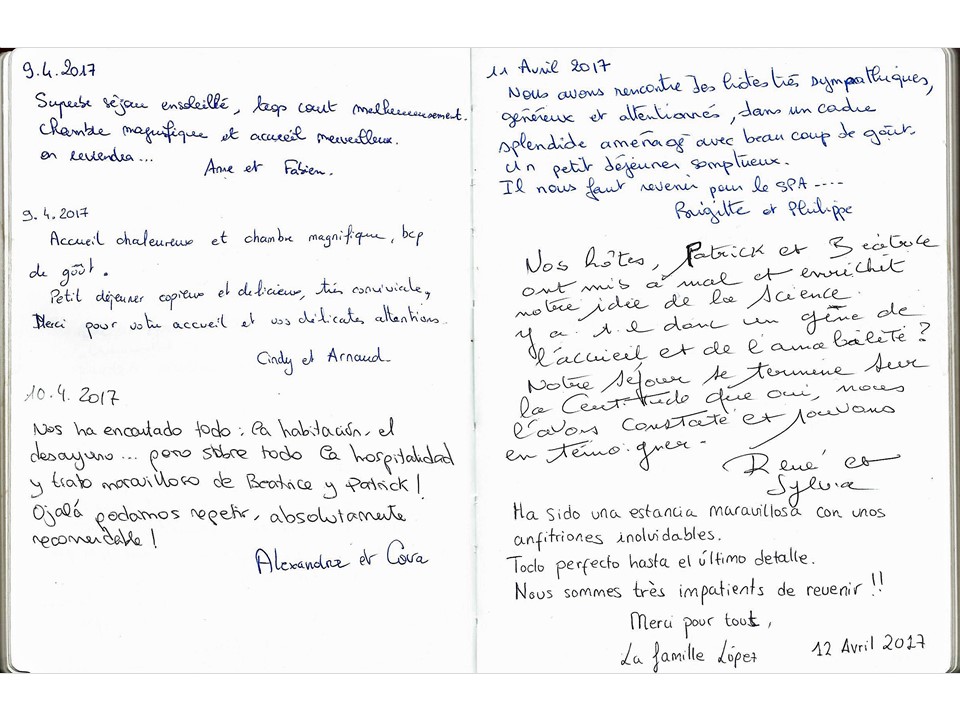 9.4.2017
Superbe séjour ensoleillé, trop court malheureusement.
Chambre magnifique et accueil merveilleux.
on reviendra...
Anne et Fabien.
9.4.2017
Accueil chaleureux et chambre magnifique, bcp
de goût.
Petit déjeuner copieux et délicieux, très conviviale,
Merci pour votre accueil et vos délicates attentions.
Cindy et Arnaud
10.4.2017
Nos ha encantado todo: la habitación, el
desayuno... pero sobre todo la hospitalidad
y trato maravilloso de Beatrice y Patrick!
Ojalá podamos repetir, absolutamente
recomendable!
Alexandra et Cova
11 Avril 2017
Nous avons rencontré des hôtes très sympathiques,
généreux et attentionnés, dans un cadre
splendide aménagé avec beaucoup de goût.
Un petit déjeuner somptueux.
Il nous faut revenir pour le SPA ----
Brigitte et Philippe
Nos hôtes, Patrick et Béatrice
ont mis à mal et enrichit
notre idée de la Science.
y a t il donc un gêne de
l'accueil et de l'amabilité?
Notre séjour se termine sur
la Certitude que oui, nous
l'avons constaté et pouvons
en témoigner.
René et
Sylvia
Ha sido una estancia maravillosa con unos
anfitriones inolvidables.
Todo perfecto hasta el último detalle.
Nous sommes très impatients de revenir!!
Merci pour tout,
La famille López
12 Avril 2017